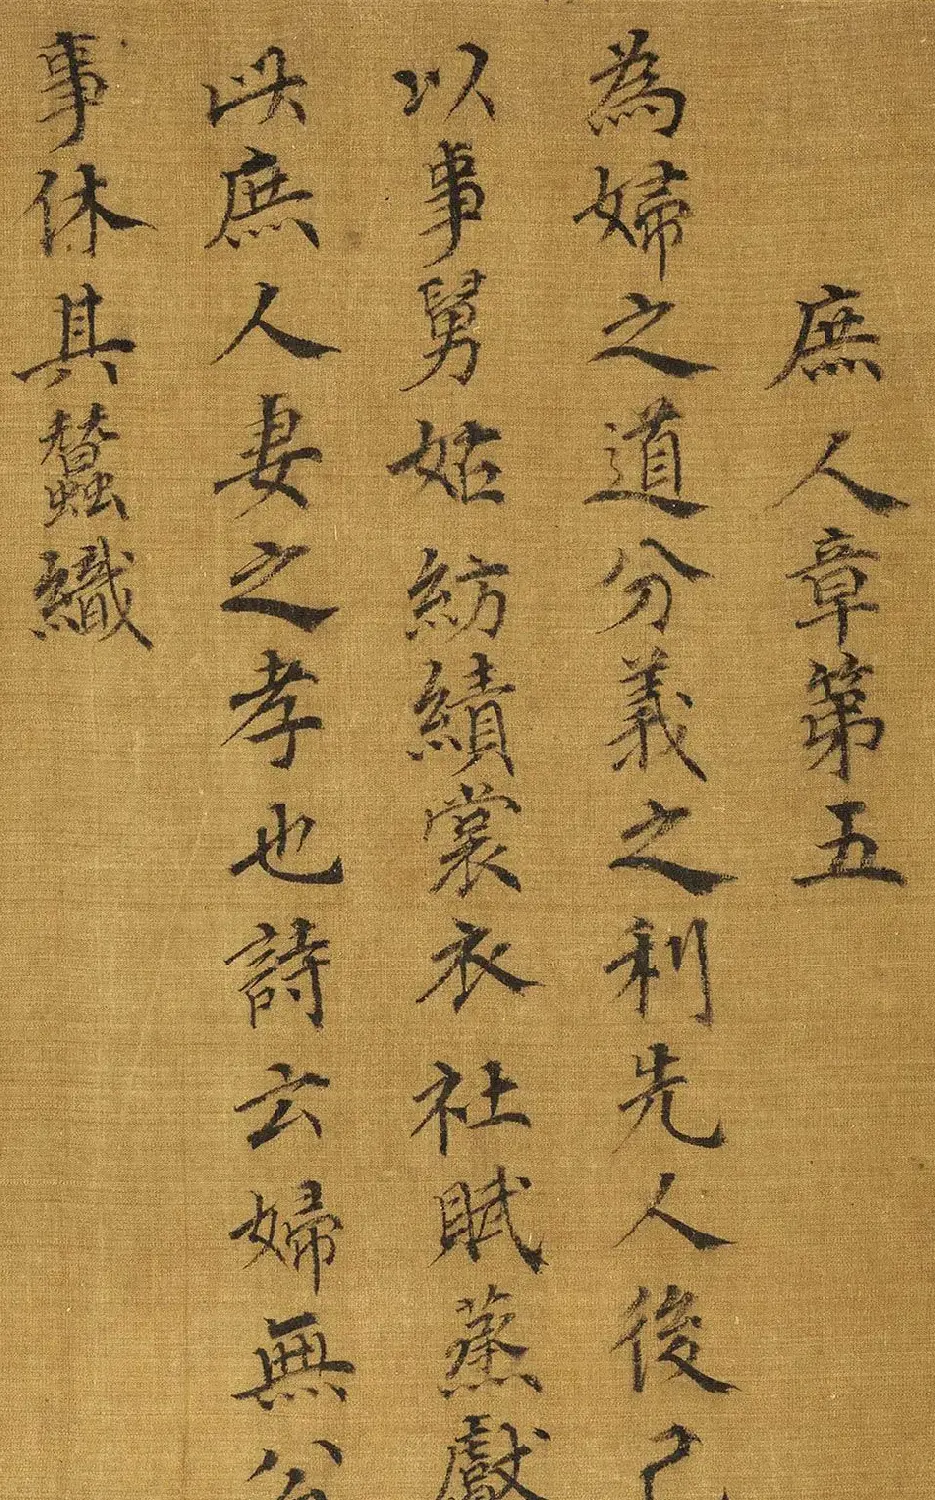 庶人章第五
為婦之道分義之利先人後己
以事舅姑紡績裳衣社賦蒸獻
此庶人妻之孝也詩云婦無公
事休其蠶織